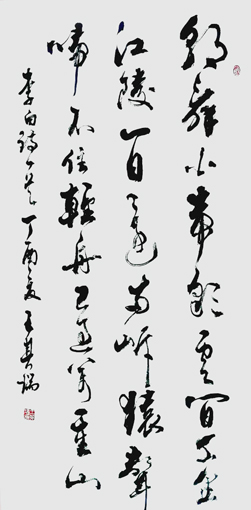 朝辭白帝彩雲間千里
江陵一日還兩岸猿聲
啼不住輕舟已過萬重山
李白詩一首丁酉夏王